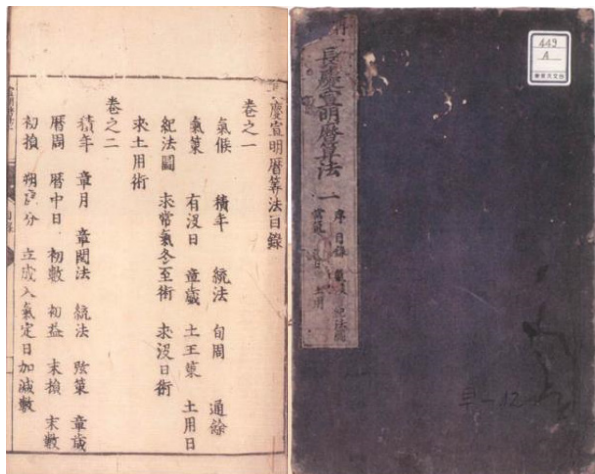 449
A
長慶宣明暦算法 一
序 目録
土用
慶宣明暦算法目錄
卷之一
氣候 積年 統法 旬周 通餘
氣策 有没日 章歲 土王策 土用日
紀法圖 求常氣冬至術 求没日術
求土用術
卷之二
積年 章月 章閏法 統法 弦策 章歲
暦周 暦中日 初數 初益 末損 末數
初損 立成入氣定日加減數